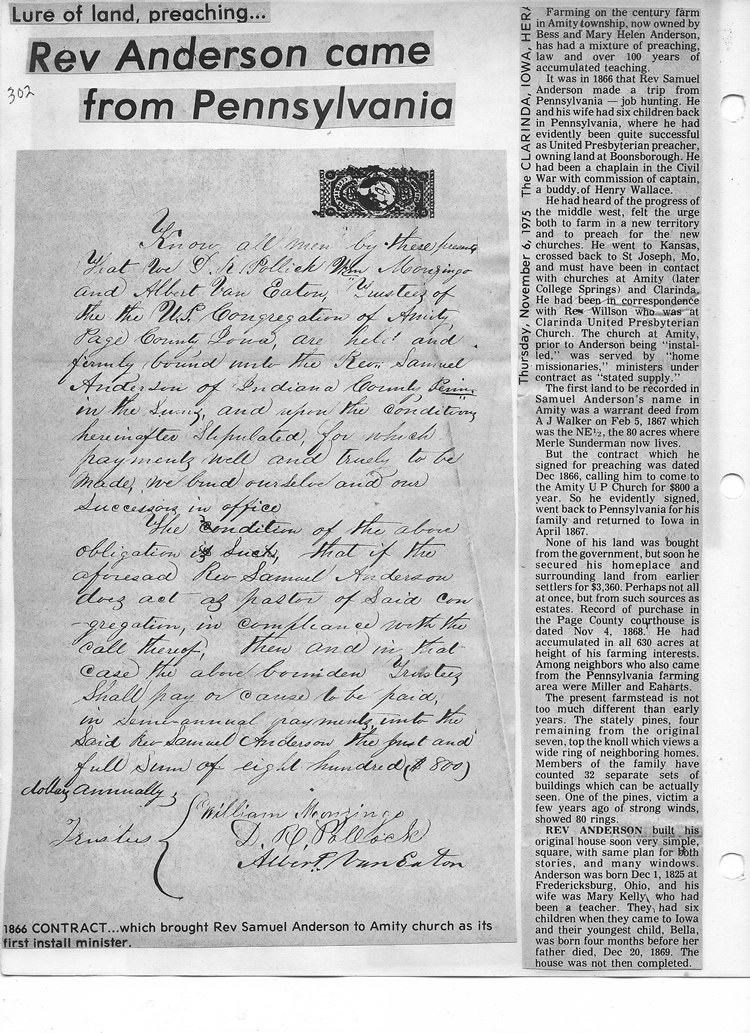 Lure of land, preaching...
Rev Anderson came
from Pennsylvania
302
Know all men by these presents
That We D. R. Pollick Wm Monzingo
and Albert Van Eaton, Trustees of
the the U.P. Congregation of Amity,
Page County Iowa, are held and
firmly bound unto the Rev. Samuel
Anderson of Indiana County Penn.
in the Sum, and upon the Conditions
hereinafter Stipulated, for which
payments well and truely to be
made, we bind ourselves and our
Successors in office
The Condition of the above
obligation is Such, that if the
aforesad Rev Samuel Anderson
does act as pastor of Said con
-gregation, in compliance with the
call thereof, then and in that
case the above bounden Trustees
Shall pay or cause to be paid,
in semi-annual payments, unto the
Said Rev Samuel Anderson the just and
full Sum of eight hundred ($800)
dollars annually,
Trustees
William Monzingo
D. R. Pollock
Albert Van Eaton
1866 CONTRACT...which brought Rev Samuel Anderson to Amity church as its
first install minister.
Thursday, November 6, 1975 The CLARINDA, IOWA, HER
Farming on the century farm
in Amity township, now owned by
Bess and Mary Helen Anderson,
has had a mixture of preaching,
law and over 100 years of
accumulated teaching.
It was in 1866 that Rev Samuel
Anderson made a trip from
Pennsylvania — job hunting. He
and his wife had six children back
in Pennsylvania, where he had
evidently been quite successful
as United Presbyterian preacher,
owning land at Boonsborough. He
had been a chaplain in the Civil
War with commission of captain,
a buddy of Henry Wallace.
He had heard of the progress of
the middle west, felt the urge
both to farm in a new territory
and to preach for the new
churches. He went to Kansas,
crossed back to St Joseph, Mo,
and must have been in contact
with churches at Amity (later
College Springs) and Clarinda.
He had been in correspondence
with Rev Willson who was at
Clarinda United Presbyterian
Church. The church at Amity,
prior to Anderson being "instal-
led," was served by "home
missionaries," ministers under
contract as "stated supply."
The first land to be recorded in
Samuel Anderson's name in
Amity was a warrant deed from
A J Walker on Feb 5, 1867 which
was the NE½, the 80 acres where
Merle Sunderman now lives.
But the contract which he
signed for preaching was dated
Dec 1866, calling him to come to
the Amity U P Church for $800 a
year. So he evidently signed,
went back to Pennsylvania for his
family and returned to Iowa in
April 1867.
None of his land was bought
from the government, but soon he
secured his homeplace and
surrounding land from earlier
settlers for $3,360. Perhaps not all
at once, but from such sources as
estates. Record of purchase in
the Page County courthouse is
dated Nov 4, 1868. He had
accumulated in all 630 acres at
height of his farming interests.
Among neighbors who also came
from the Pennsylvania farming
area were Miller and Eaharts.
The present farmstead is not
too much different than early
years. The stately pines, four
remaining from the original
seven, top the knoll which views a
wide ring of neighboring homes.
Members of the family have
counted 32 separate sets of
buildings which can be actually
seen. One of the pines, victim a
few years ago of strong winds,
showed 80 rings.
REV ANDERSON built his
original house soon very simple,
square, with same plan for both
stories, and many windows.
Anderson was born Dec 1, 1825 at
Fredericksburg, Ohio, and his
wife was Mary Kelly, who had
been a teacher. They had six
children when they came to Iowa
and their youngest child, Bella,
was born four months before her
father died, Dec 20, 1869. The
house was not then completed.